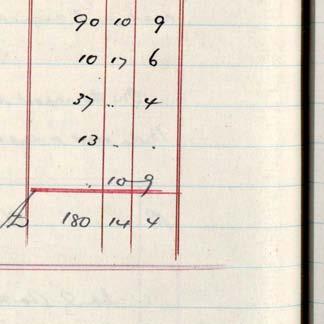 90 10 9
10 17 6
37 .. 4
13 . .
.. 10 9
£ 180 14 4